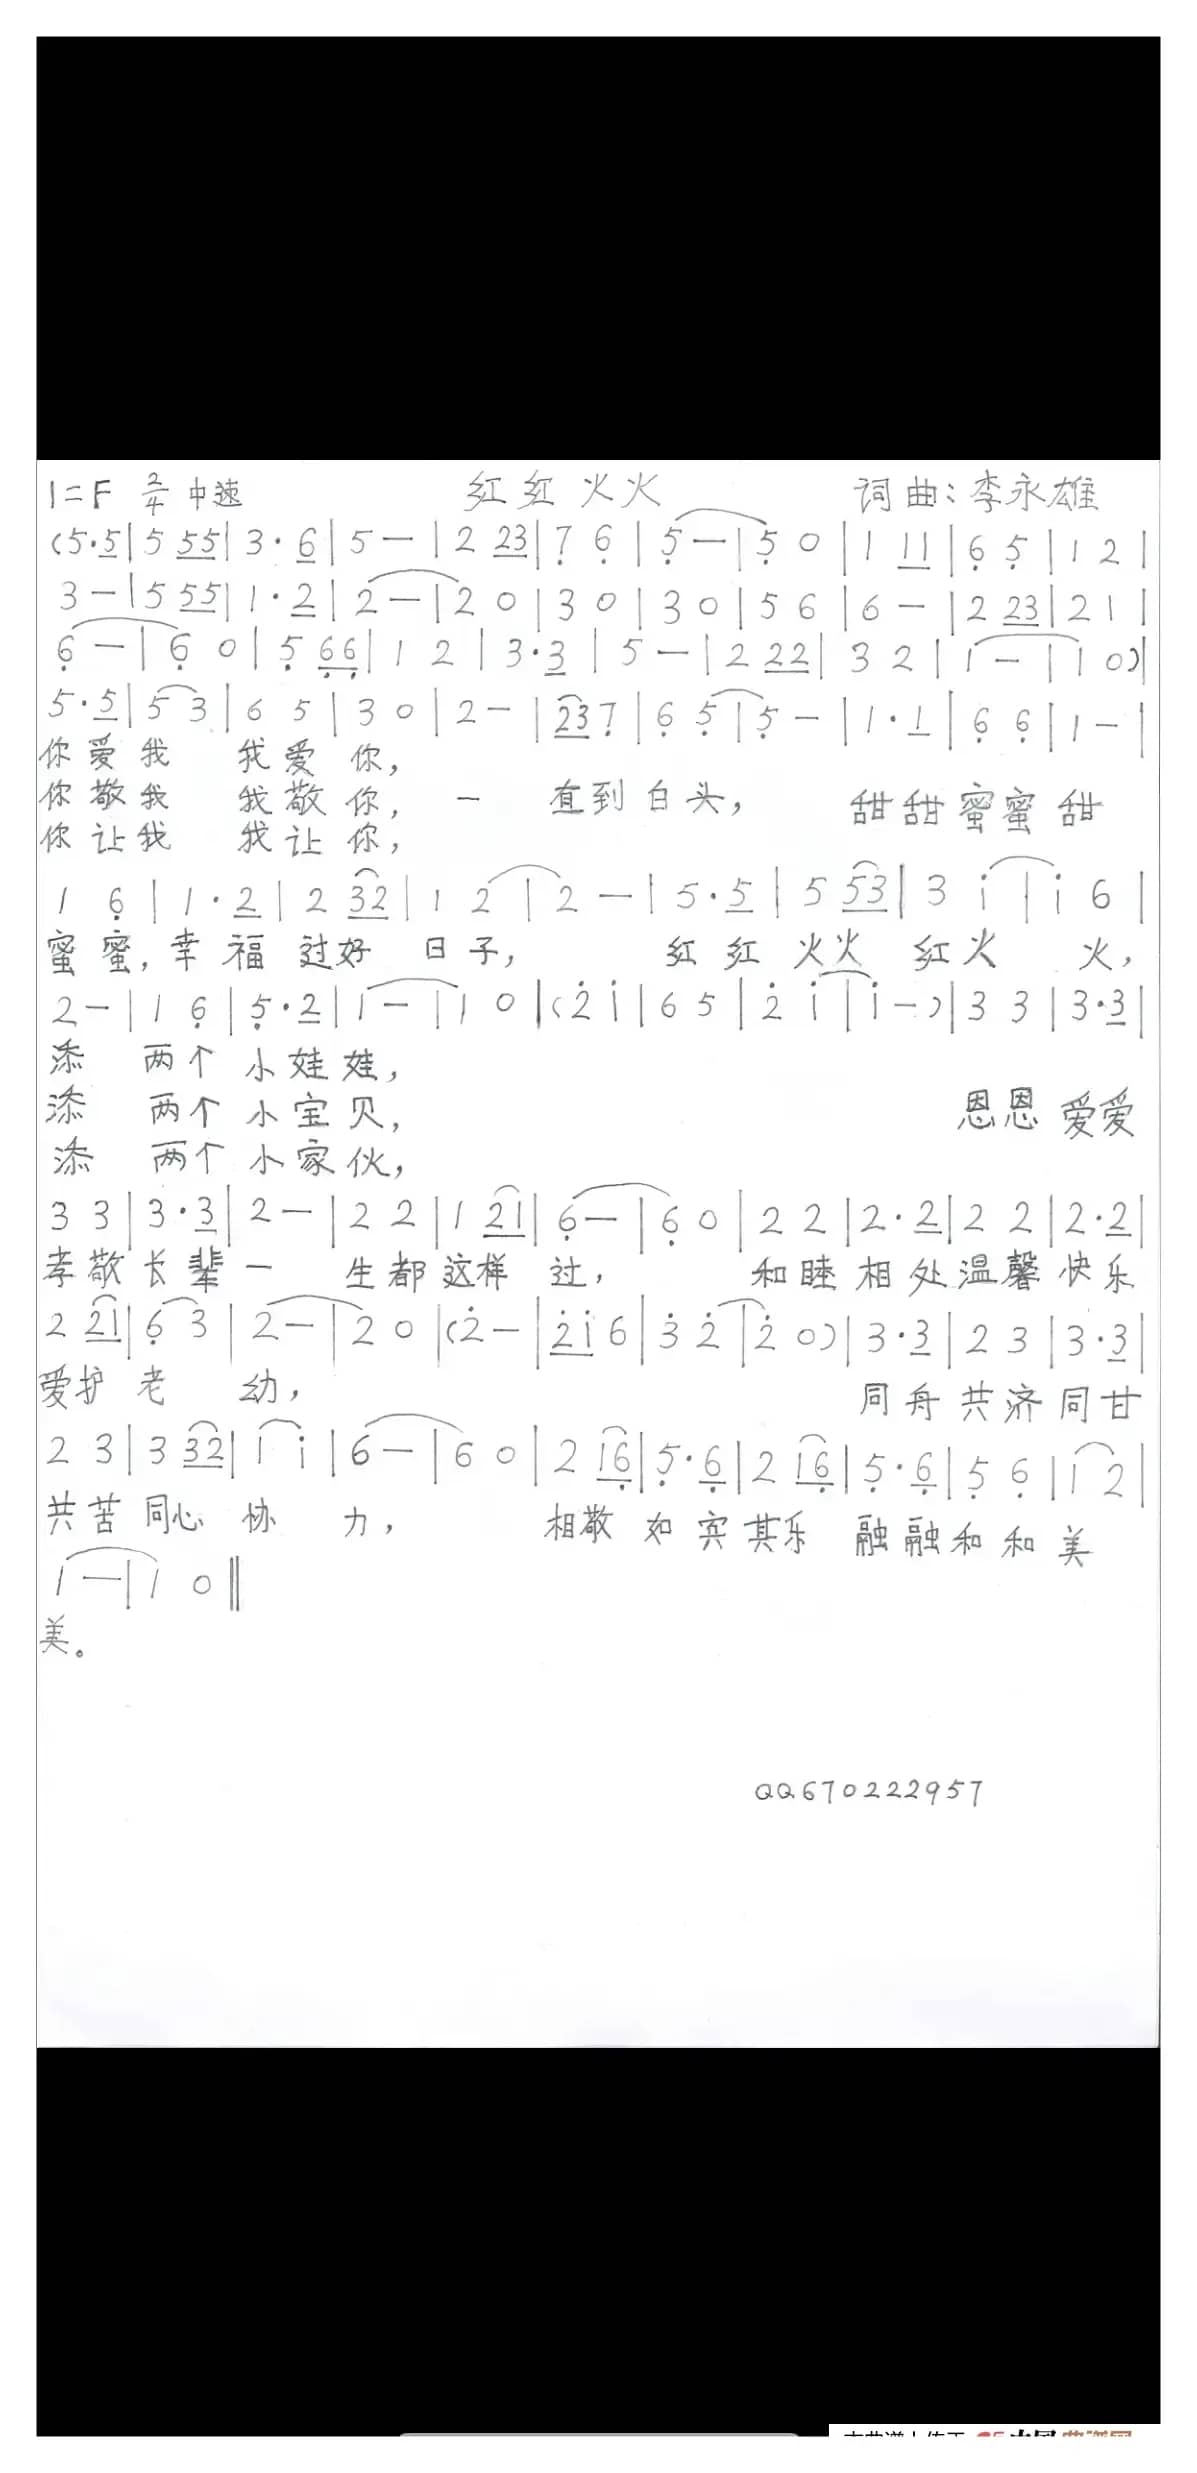 1=F 2/4 中速 红红火火 词曲:李永雄
(5·5|5 55|3·6|5—|2 23|7 6|5—|5 0|1 11|6 5|1 2|
3—|5 55|1·2|2—|2 0|3 0|3 0|5 6|6—|2 23|2 1|
6—|6 0|5 66|1 2|3·3|5—|2 22|3 2|1—|1 0)|
5·5|5 3|6 5|3 0|2—|237|6 5|5—|1·1|6 6|1—|
你爱我 我爱你,
你敬我 我敬你, 一 直到白头, 甜甜蜜蜜甜
你让我 我让你,
1 6|1·2|2 32|1 2|2—|5·5|5 53|3 i|i 6|
蜜蜜,幸福过好 日子, 红红火火 红火 火,
2—|1 6|5·2|1—|1 0|(2̇ i|6 5|2̇ i|i—)|3 3|3·3|
添 两个小娃娃,
添 两个小宝贝, 恩恩爱爱
添 两个小家伙,
3 3|3·3|2—|2 2|1 21|6—|6 0|2 2|2·2|2 2|2·2|
孝敬长辈一 生都这样过, 和睦相处温馨快乐
2 21|6 3|2—|2 0|(2̇—|2̇i6|3̇ 2̇|2̇ 0)|3·3|2 3|3·3|
爱护老 幼, 同舟共济同甘
2 3|3 32|1 i|6—|6 0|2 16|5·6|2 16|5·6|5 6|1 2|
共苦同心协 力, 相敬如宾其乐融融和和美
1—|1 0‖
美。
QQ670222957